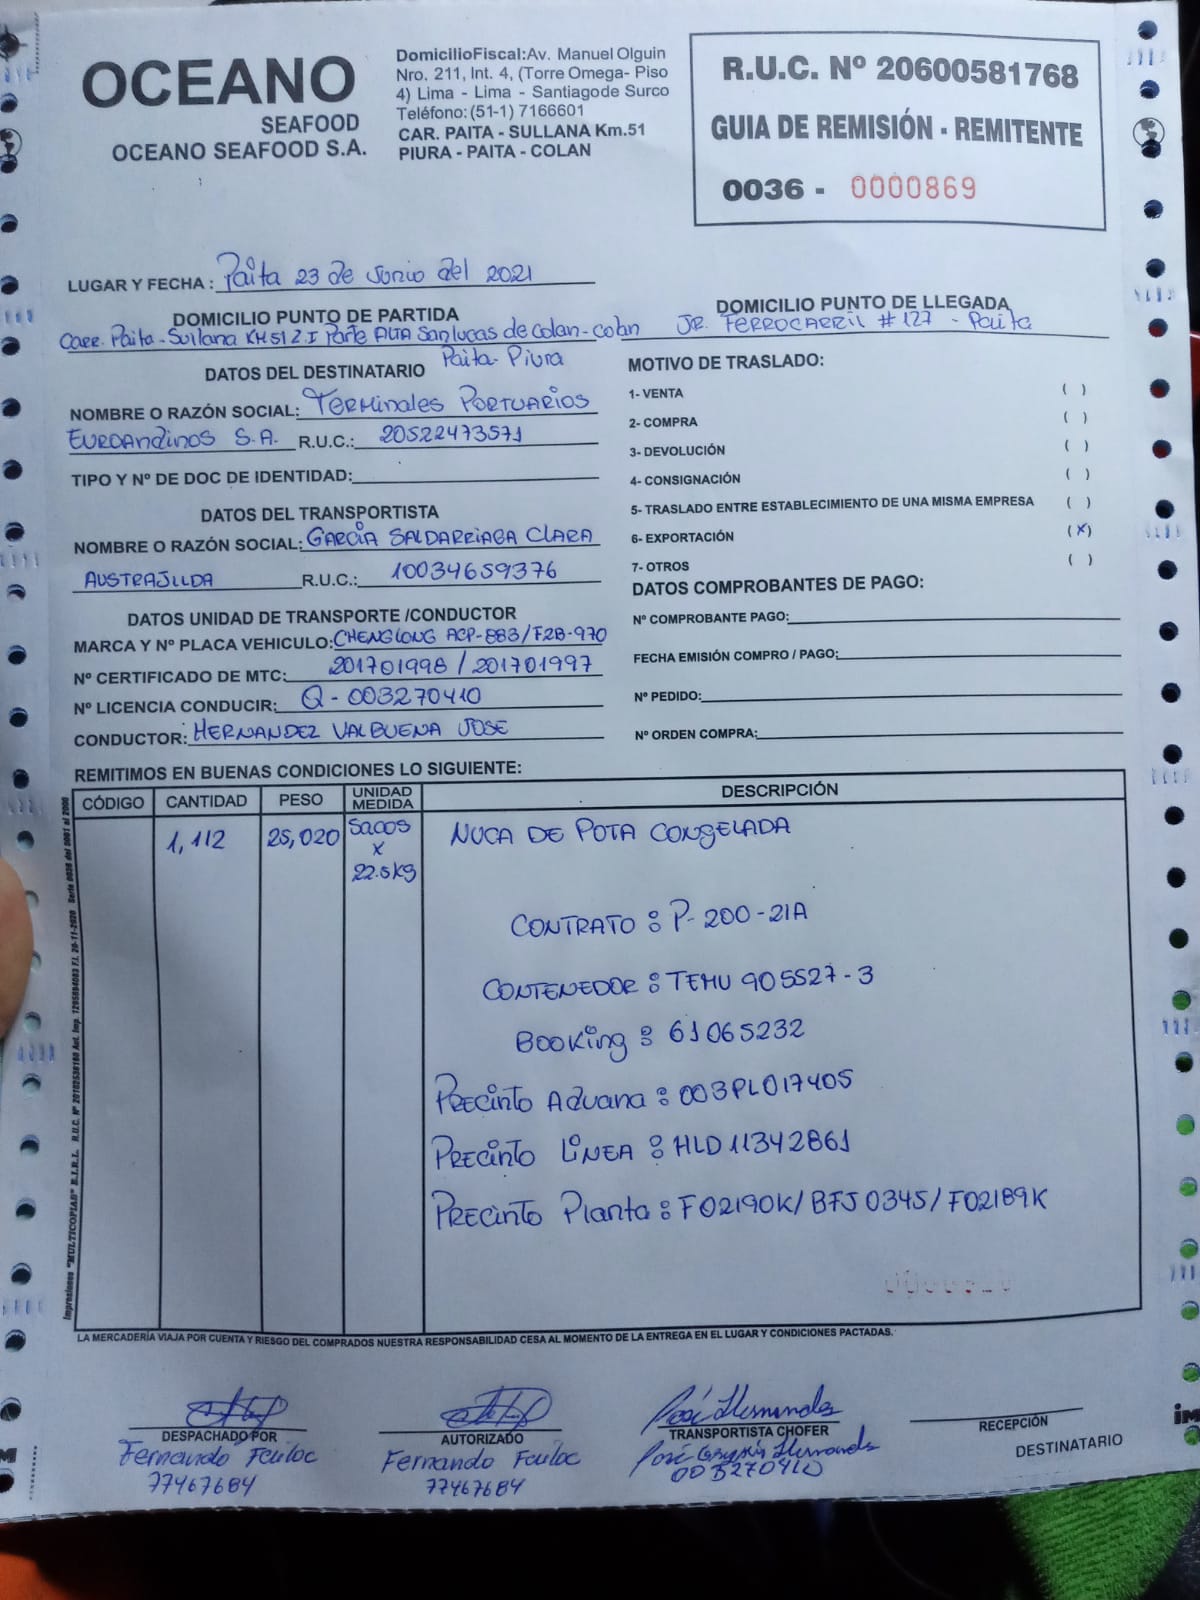 OCEANO
SEAFOOD
OCEANO SEAFOOD S.A.
DomicilioFiscal:Av. Manuel Olguin
Nro. 211, Int. 4, (Torre Omega- Piso
4) Lima - Lima - Santiagode Surco
Teléfono: (51-1) 7166601
CAR. PAITA - SULLANA Km.51
PIURA - PAITA - COLAN
R.U.C. Nº 20600581768
GUIA DE REMISIÓN - REMITENTE
0036 - 0000869
LUGAR Y FECHA : Paita 23 de Junio del 2021
DOMICILIO PUNTO DE PARTIDA
Carr. Paita - Sullana KM 51 Z.I Parte ALTA San Lucas de Colan - Colan
Paita - Piura
DOMICILIO PUNTO DE LLEGADA
JR. FERROCARRIL # 127 - Paita
DATOS DEL DESTINATARIO
NOMBRE O RAZÓN SOCIAL: TERMINALES PORTUARIOS
EUROANDINOS S.A. R.U.C.: 20522473571
TIPO Y Nº DE DOC DE IDENTIDAD:
DATOS DEL TRANSPORTISTA
NOMBRE O RAZÓN SOCIAL: GARCÍA SALDARRIAGA CLARA
R.U.C.: 10034659376
DATOS UNIDAD DE TRANSPORTE /CONDUCTOR
MARCA Y Nº PLACA VEHICULO: CHENGLONG ACP-883/F2B-970
Nº CERTIFICADO DE MTC: 201701998 / 201701997
Nº LICENCIA CONDUCIR: Q - 003270410
CONDUCTOR: HERNANDEZ VALBUENA JOSE
MOTIVO DE TRASLADO:
1- VENTA ( )
2- COMPRA ( )
3- DEVOLUCIÓN ( )
4- CONSIGNACIÓN ( )
5- TRASLADO ENTRE ESTABLECIMIENTO DE UNA MISMA EMPRESA ( )
6- EXPORTACIÓN (X)
7- OTROS ( )
DATOS COMPROBANTES DE PAGO:
Nº COMPROBANTE PAGO:
FECHA EMISIÓN COMPRO / PAGO:
Nº PEDIDO:
Nº ORDEN COMPRA:
REMITIMOS EN BUENAS CONDICIONES LO SIGUIENTE:
CÓDIGO CANTIDAD PESO UNIDAD MEDIDA DESCRIPCIÓN
1,112 25,020 Sacos x 22.5kg NUCA DE POTA CONGELADA
CONTRATO : P-200-21A
CONTENEDOR : TEMU 905527-3
Booking : 61065232
Precinto Aduana : 003PL017405
Precinto LÍNEA : HLD 11342861
Precinto Planta : F02190K/ BFJ 0345/ F02189K
LA MERCADERÍA VIAJA POR CUENTA Y RIESGO DEL COMPRADOS NUESTRA RESPONSABILIDAD CESA AL MOMENTO DE LA ENTREGA EN EL LUGAR Y CONDICIONES PACTADAS.
DESPACHADO POR
Fernando
77467684
AUTORIZADO
Fernando
77467684
José Hernandez
TRANSPORTISTA CHOFER
José Hernandez
003270410
RECEPCIÓN
DESTINATARIO